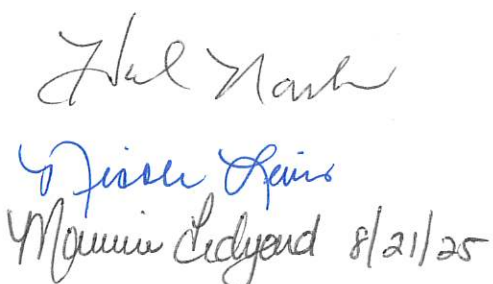 Hal Nash
Nicole Lewis
Ledyard 8/21/25